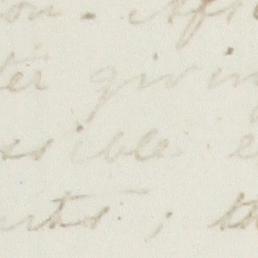 on. Afte
ter giving
ssible e
arts; th